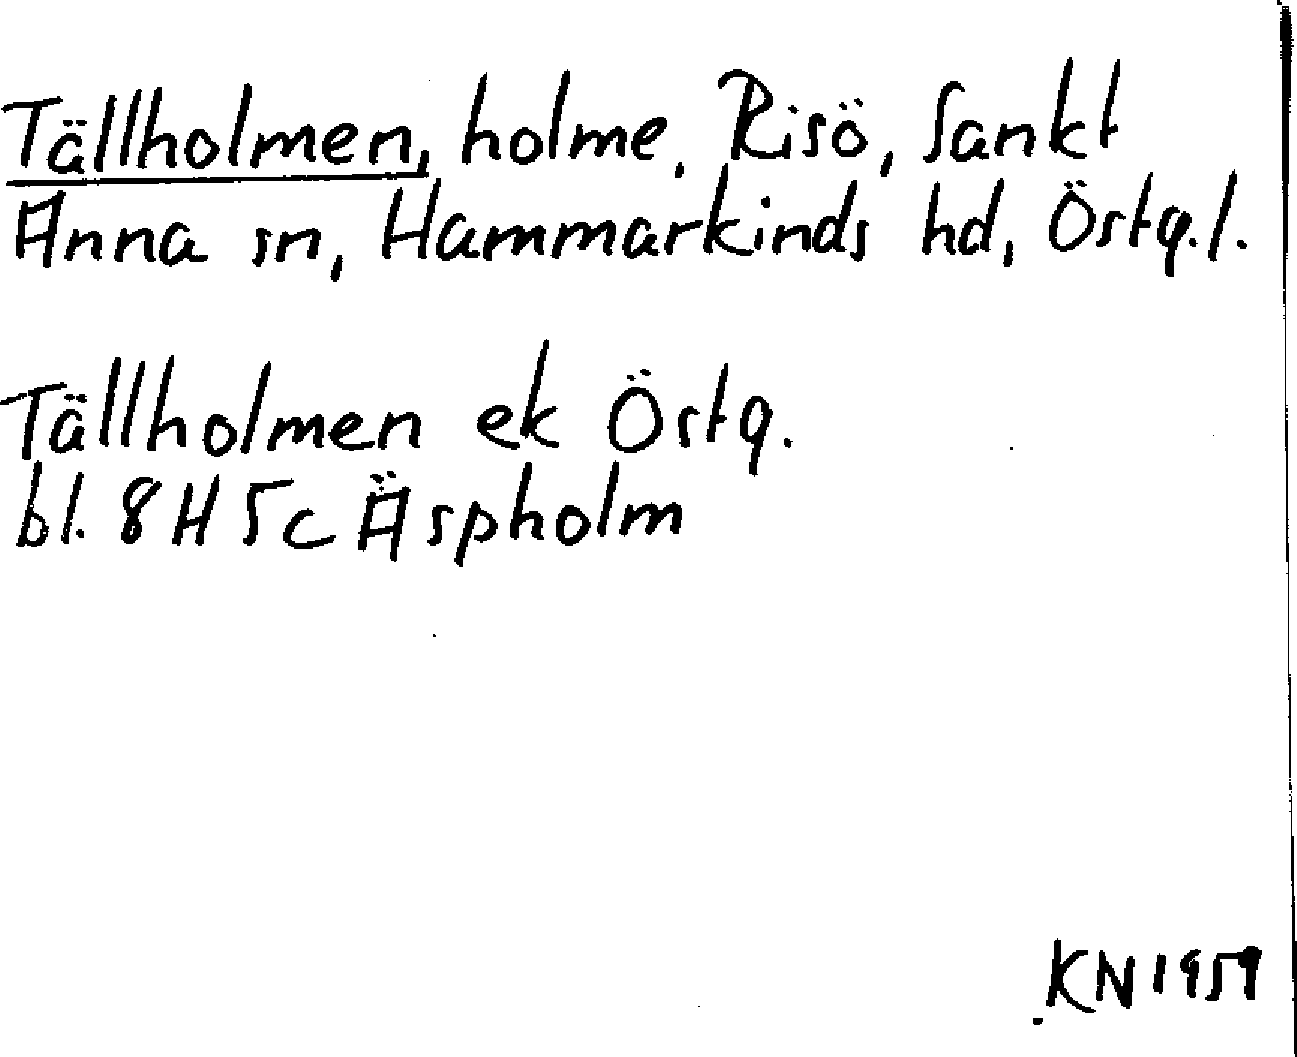 Tällholmen, holme, Risö, Sankt
Anna sn, Hammarkinds hd, Östg.l.
Tällholmen ek Östg.
bl. 8H 5c Äspholm
KN 1959